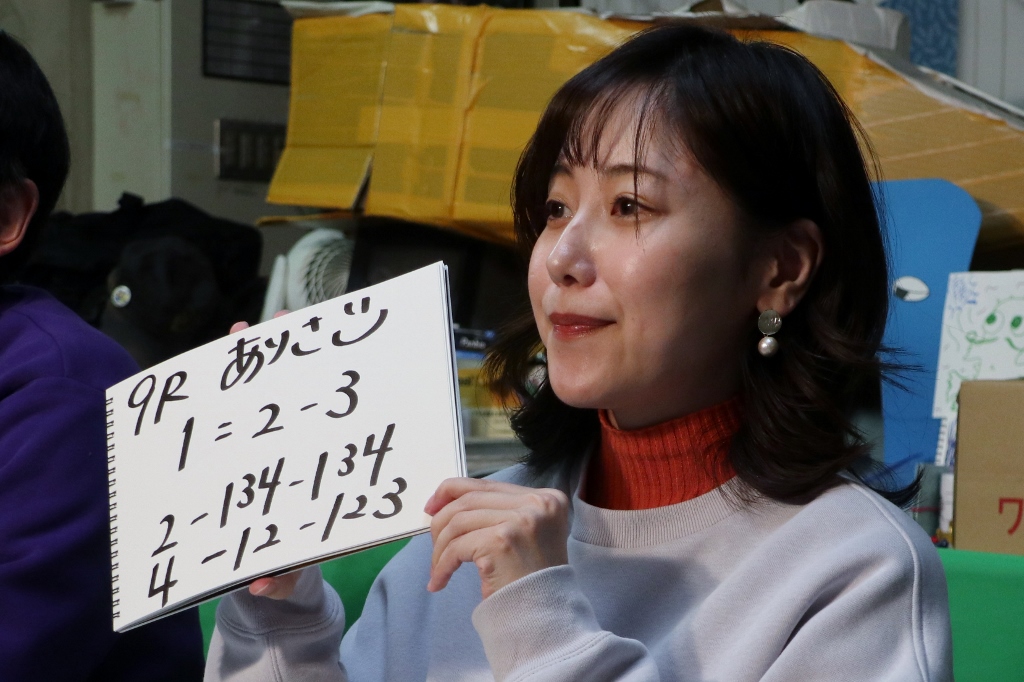 9R ありさじ
1=2-3
2-134-134
4-12-123
ワ